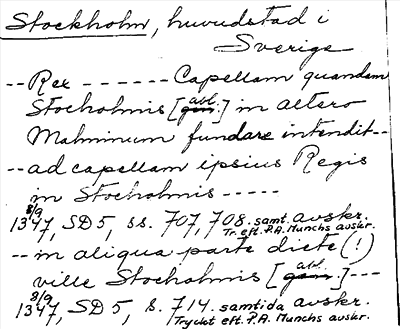 Stockholm, huvudstad i
Sverige
-- Rex ------- Capellam quandam
Stocholmis [gen. abl.] in altero
Malminum fundare intendit --
-- ad capellam ipsius Regis
in Stocholmis -----
8/9 1347, SD 5, ss. 707, 708. samt. avskr.
Tr. eft. P.A. Munchs avskr.
-- in aliqua parte diete (!)
ville Stocholmis [gen. abl.] ---
8/9 1347, SD 5, s. 714. samtida avskr.
Tryckt eft. P.A. Munchs avskr.